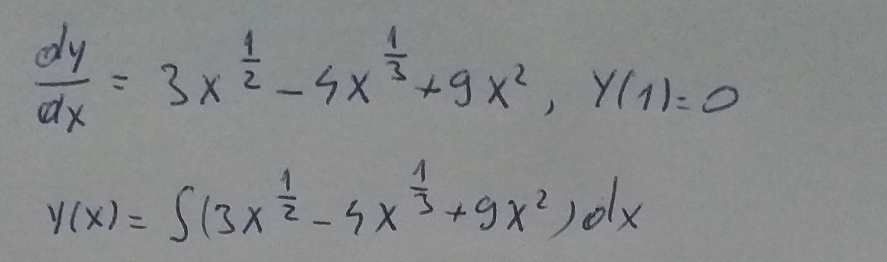 dy/dx = 3x^(1/2) - 4x^(1/3) + 9x², Y(1)=0
Y(x) = ∫(3x^(1/2) - 4x^(1/3) + 9x²)dx